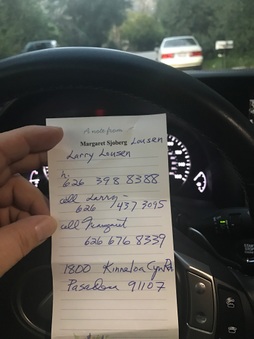 A note from
Margaret Sjoberg Lousen
Larry Lousen
h.
626 398 8388
cell Larry
626 437 3095
cell Margaret
626 676 8339
1800 Kinneloa Cyn Rd
Pasadena 91107